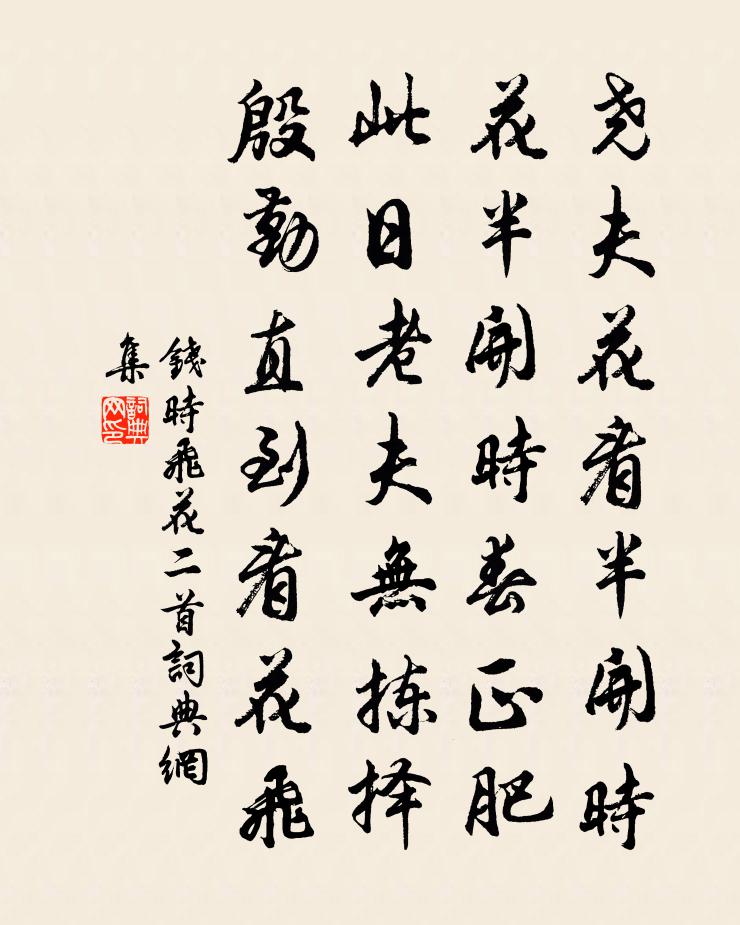 尧夫花看半開時
花半開時春正肥
此日老夫無拣择
殷勤直到看花飛
錢時飛花二首詞典網
集
詞典
网印